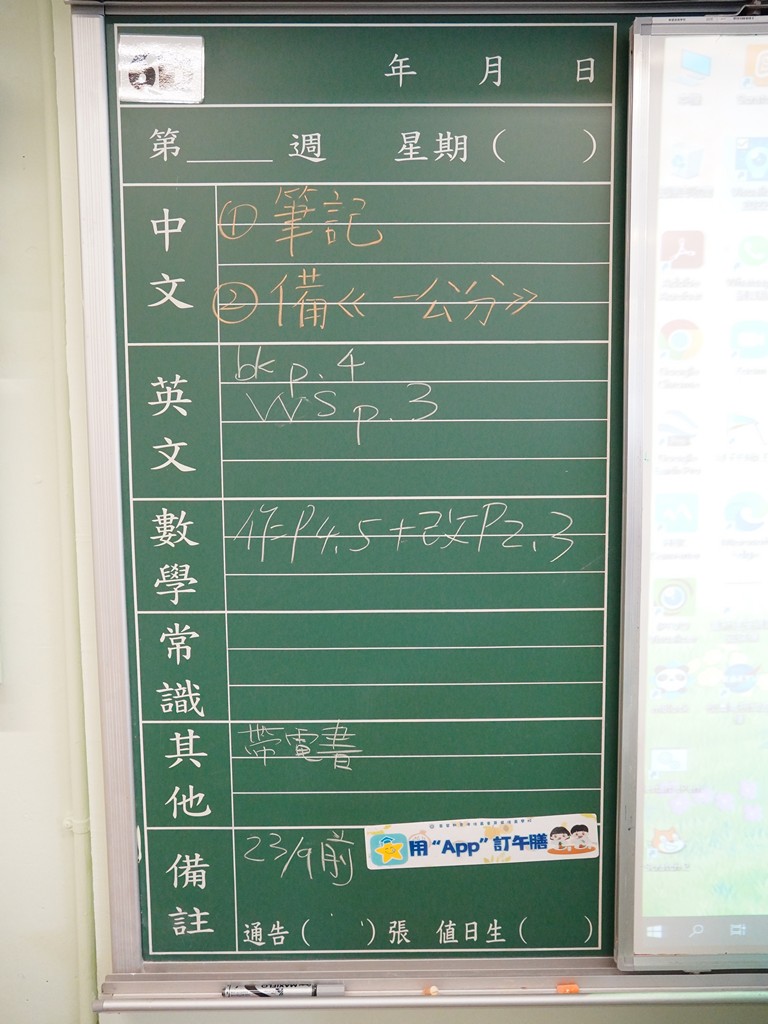 年 月 日
第____週 星期( )
中文
①筆記
②備《一公分》
英文
bk p.4
WS p.3
數學
作P4.5+改P2.3
常識
其他
帶電書
備註
23/9前
用“App”訂午膳
通告( )張 值日生( )